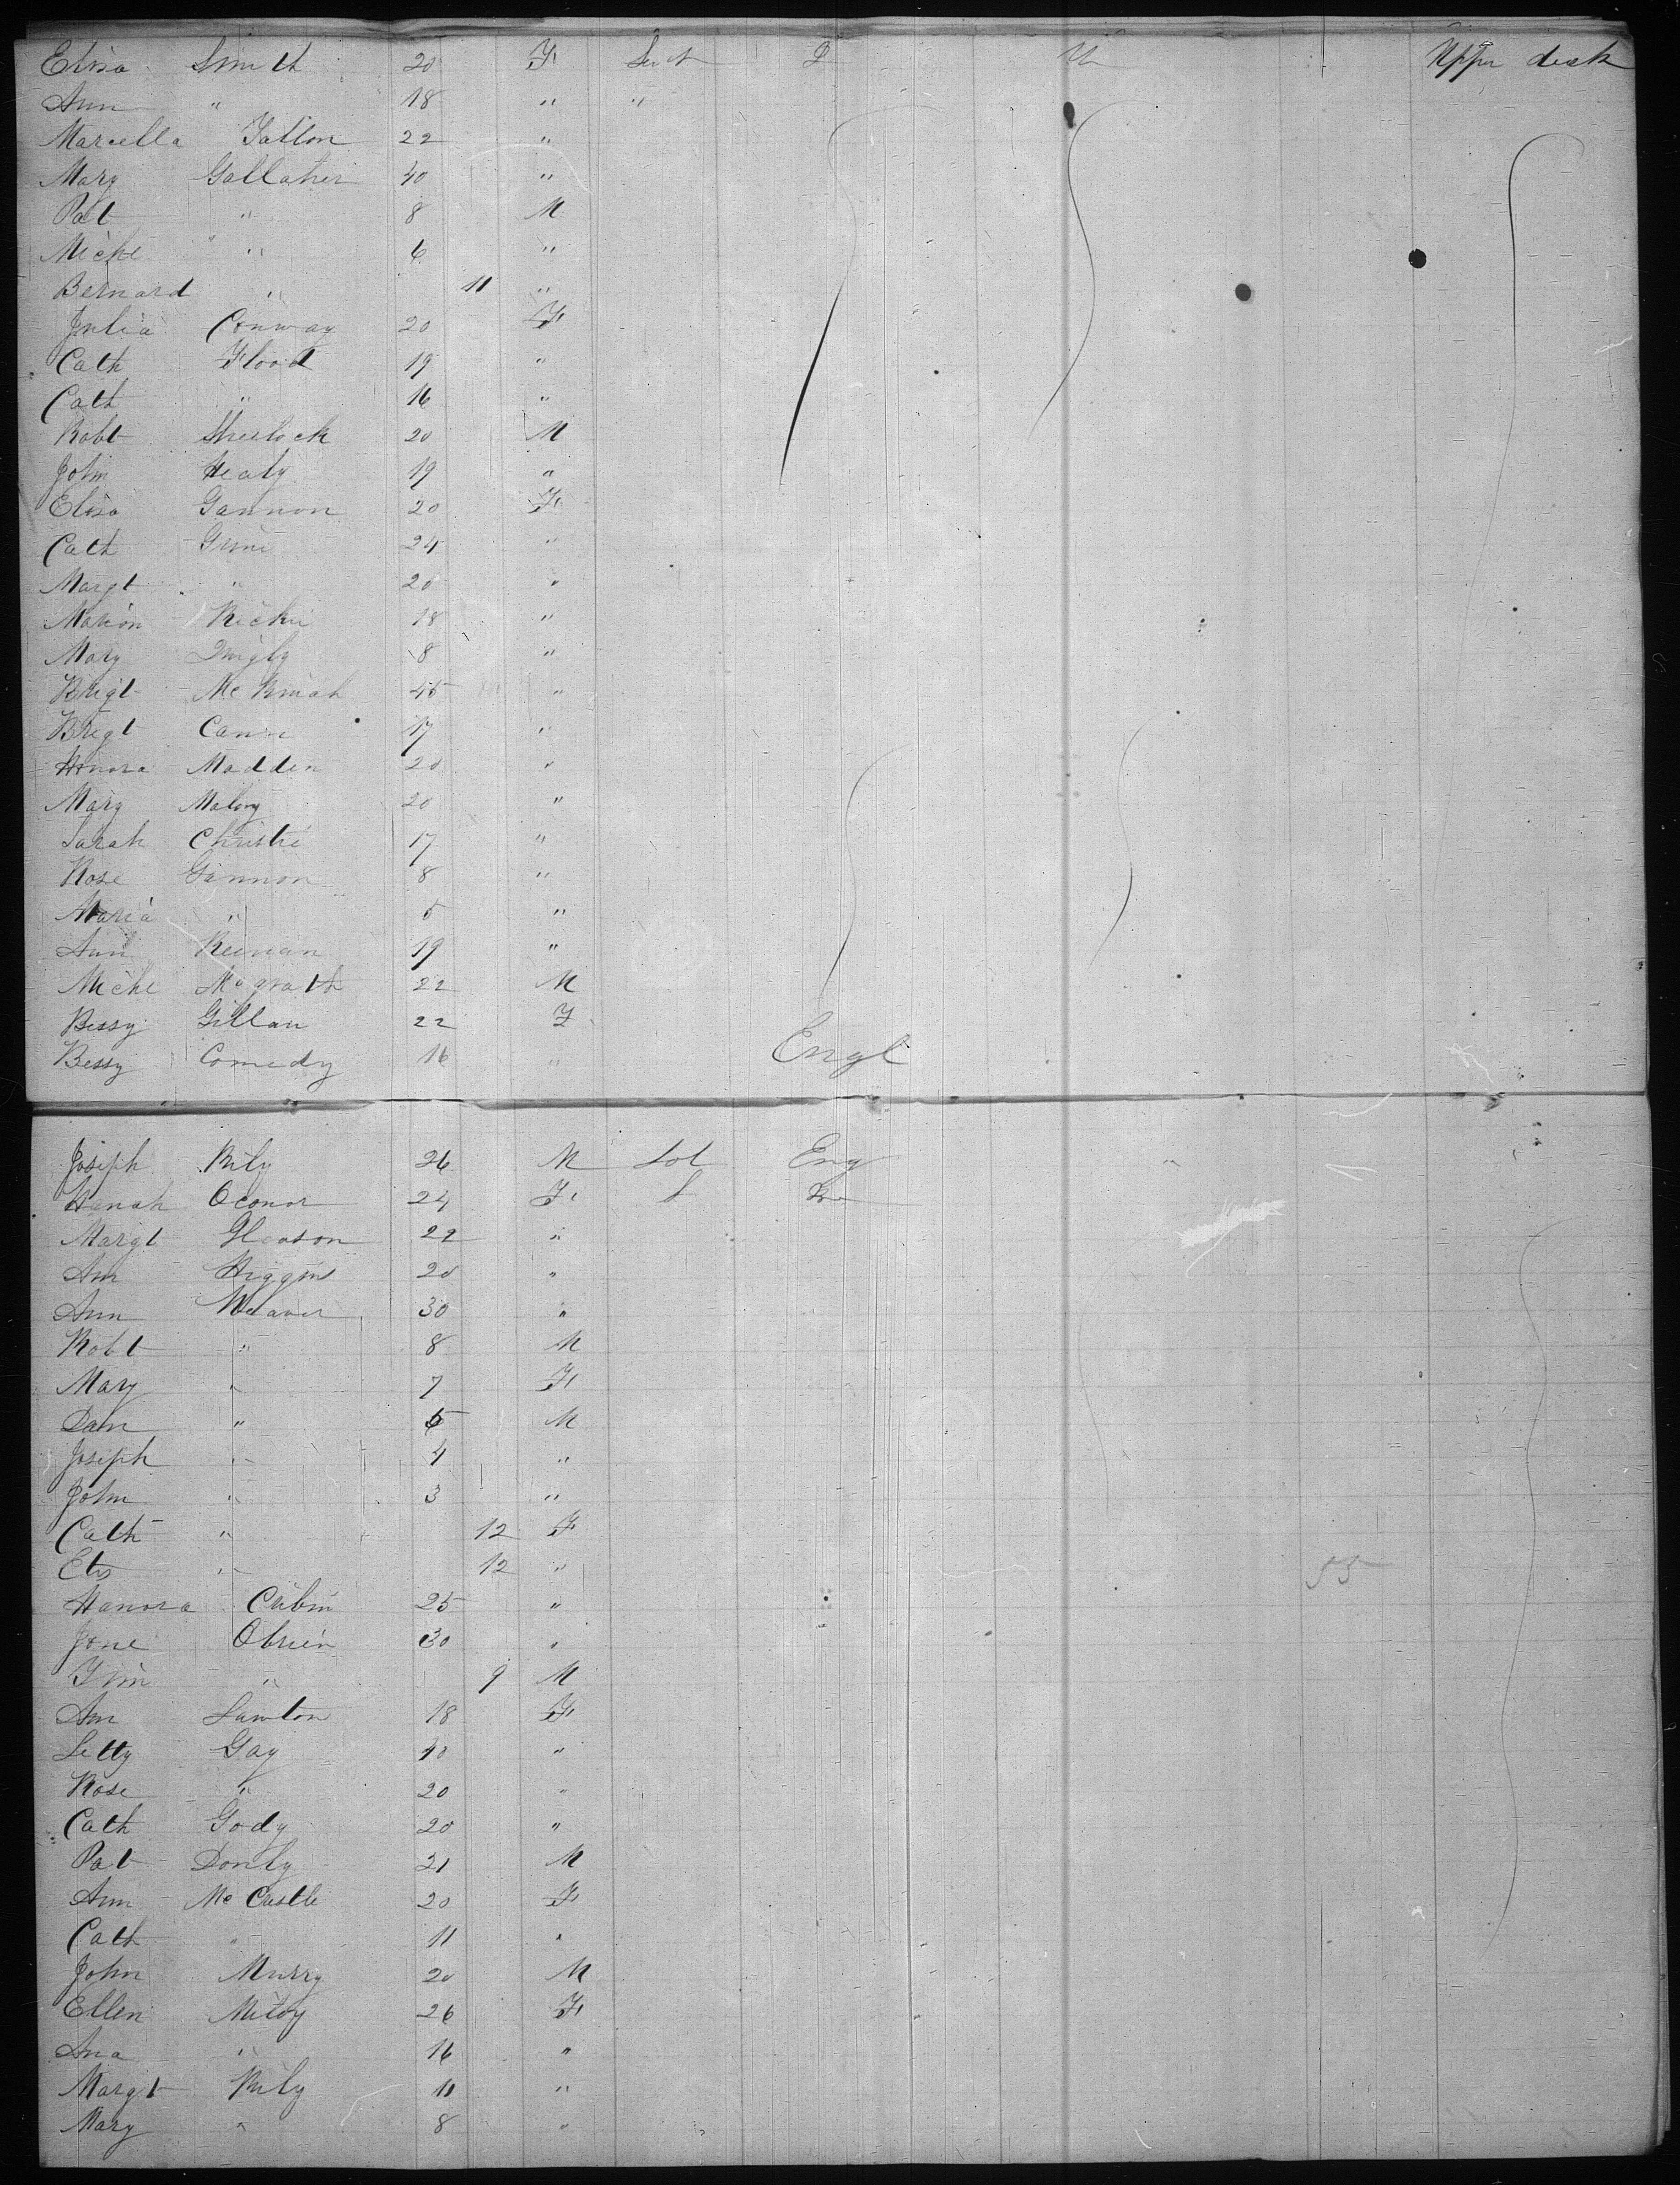 Eliza Smith 20 F Sert I U Upper deck
Ann " 18 " "
Marcella Fallon 22 "
Mary Gallaher 40 "
Pat " 8 M
Miche " 6 "
Bernard " 11 "
Julia Conway 20 F
Cath Flood 19 "
Cath " 16 "
Robt Sheelock 20 M
John Healy 19 "
Eliza Gannon 20 F
Cath 24 "
Margt " 20 "
Marion Richie 18 "
Mary Quigly 8 "
Brigt 45 "
Brigt Cann 17 "
Honora Madden 20 "
Mary Malony 20 "
Sarah Christie 17 "
Rose Gannon 8 "
Maria " 5 "
Ann Keenan 19 "
Miche Mcgrath 22 M
Bessy Gillan 22 F
Bessy Comedy 16 " Engl
Joseph Rily 26 M Sol Eng
Hanah Oconor 24 F S Ire
Margt Gleason 22 "
Ann Higgins 20 "
Ann Weaver 30 "
Robt " 8 M
Mary " 7 F
Dam " 5 M
Joseph " 4 "
John " 3 "
Cath " 12 F
Els " 12 " 55
Hanora Cubin 25 "
Jane Obrien 30 "
" 9 M
Ann Lawton 18 F
Letty Gay 40 "
Rose " 20 "
Cath Gody 20 "
Pat Donly 21 M
Ann Mc Castle 20 F
Cath " 11 "
John Murry 20 M
Ellen 26 F
Ana " 16 "
Margt Rily 11 "
Mary " 8 "